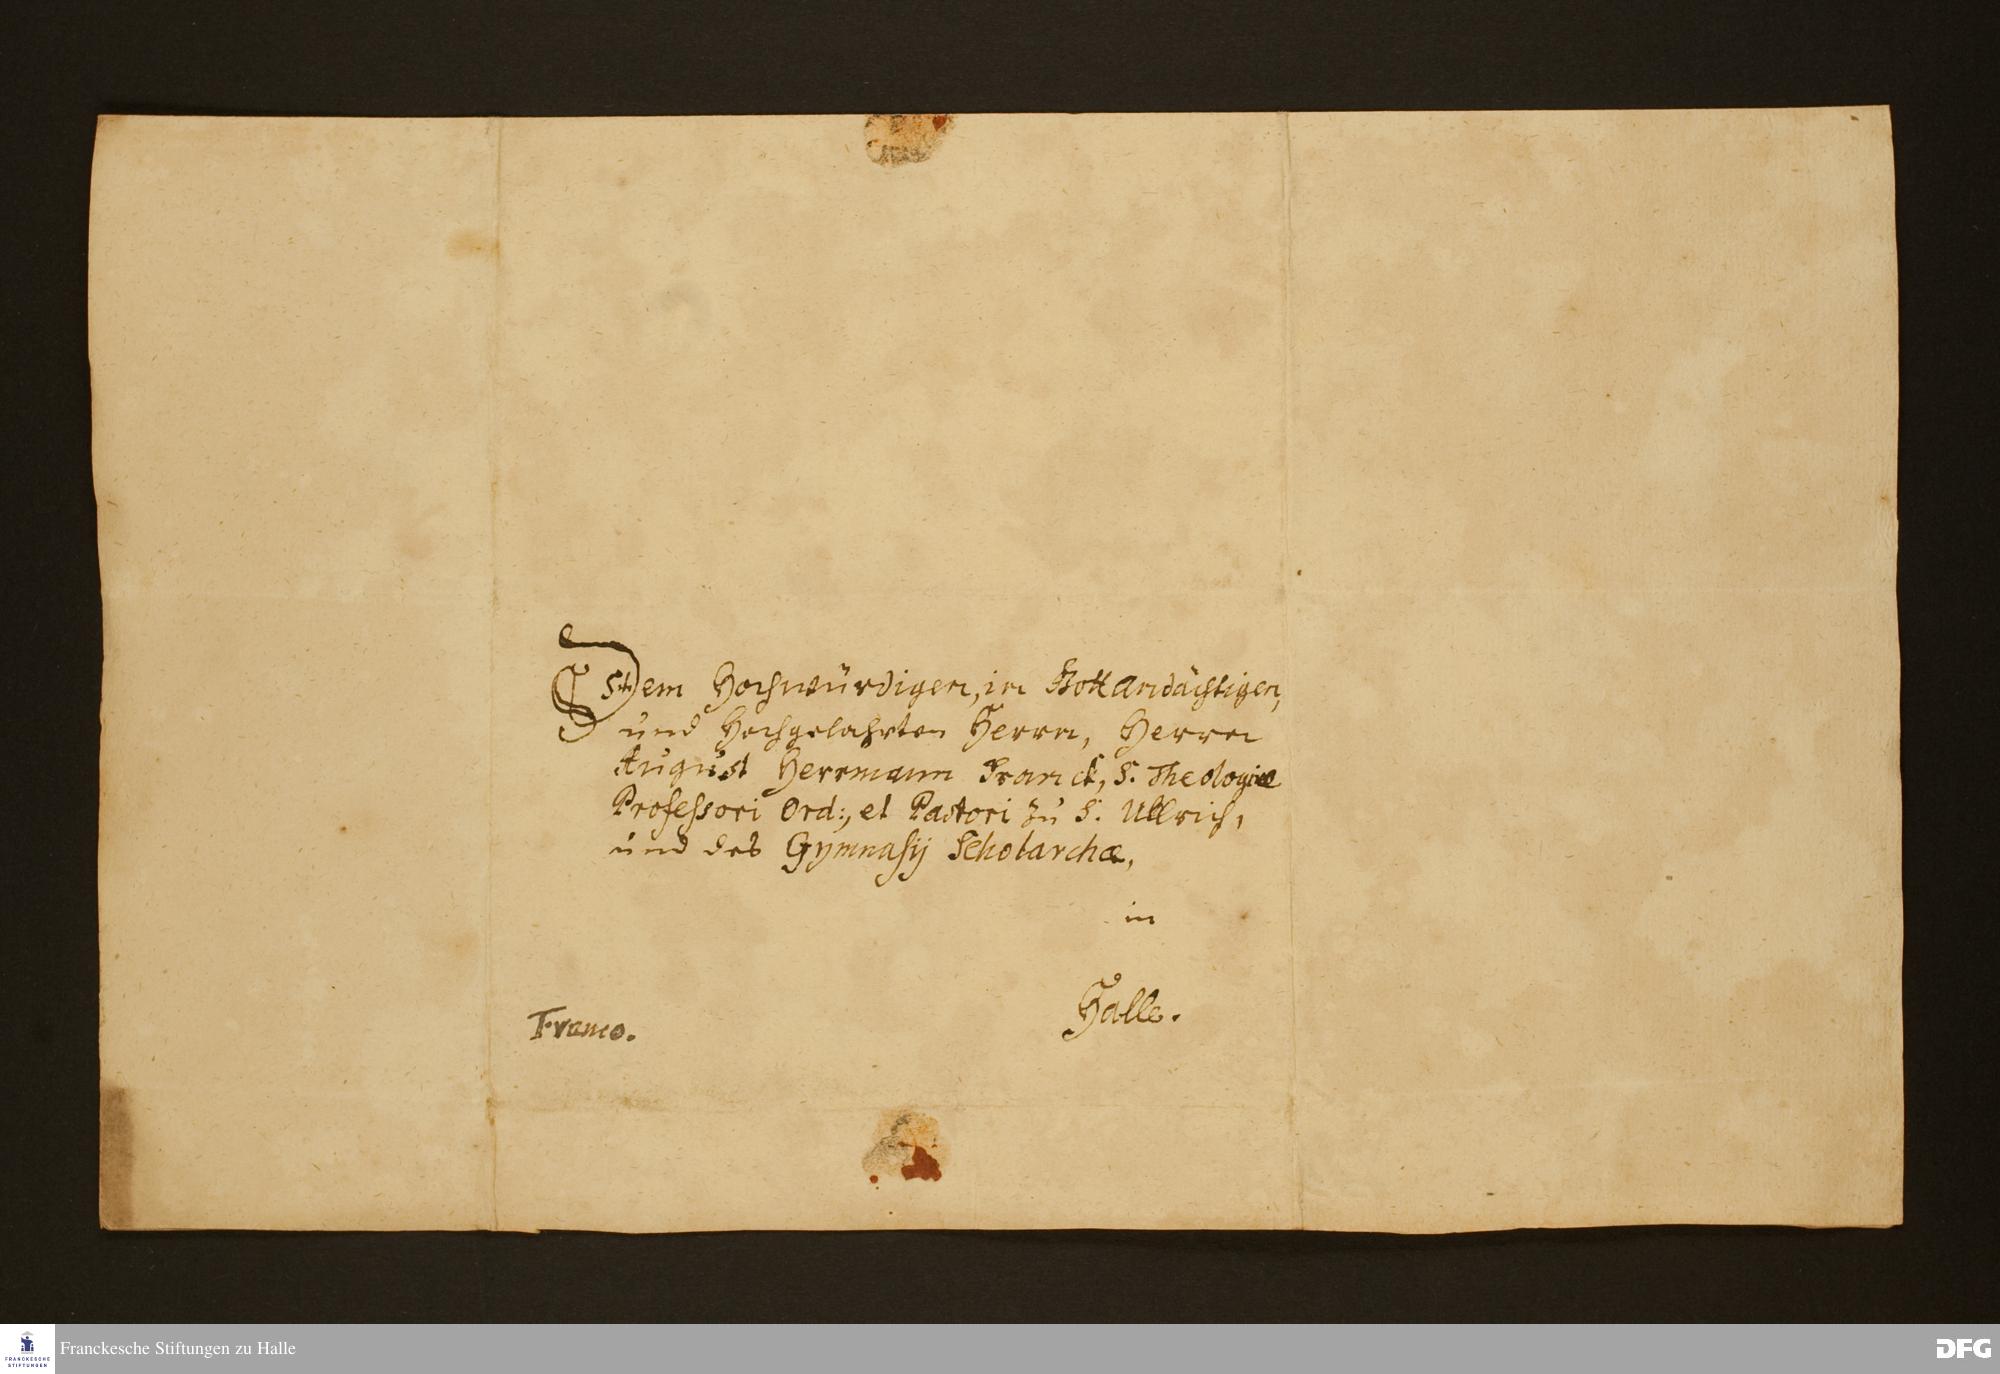 Dem Hochwürdigen, in Gott Andächtigen,
und Hochgelahrten Herrn, Herrn
August Herrmann Franck, S. Theologiæ
Professori Ord:, et Pastori zu S. Ullrich,
und des Gymnasij Scholarchæ,
in
Halle.
Franco.
Franckesche Stiftungen zu Halle
FRANCKESCHE
STIFTUNGEN
DFG